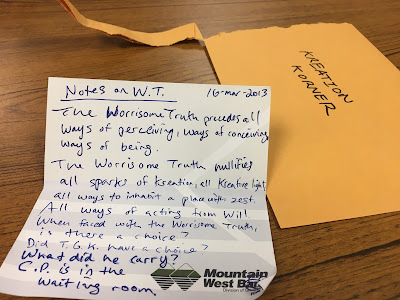 Notes on W.T. 16-mar-2013
The Worrisome Truth precedes all
ways of perceiving, ways of conceiving
ways of being.
The Worrisome Truth nullifies
all sparks of Kreation, all Kreative light,
all ways to inhabit a place with zest.
All ways of acting from Will.
When faced with the Worrisome Truth,
is there a choice?
Did T.G.K. have a choice?
What did he carry?
C.P. is in the
waiting room
Mountain
West Bank
Division of
KREATION
KORNER